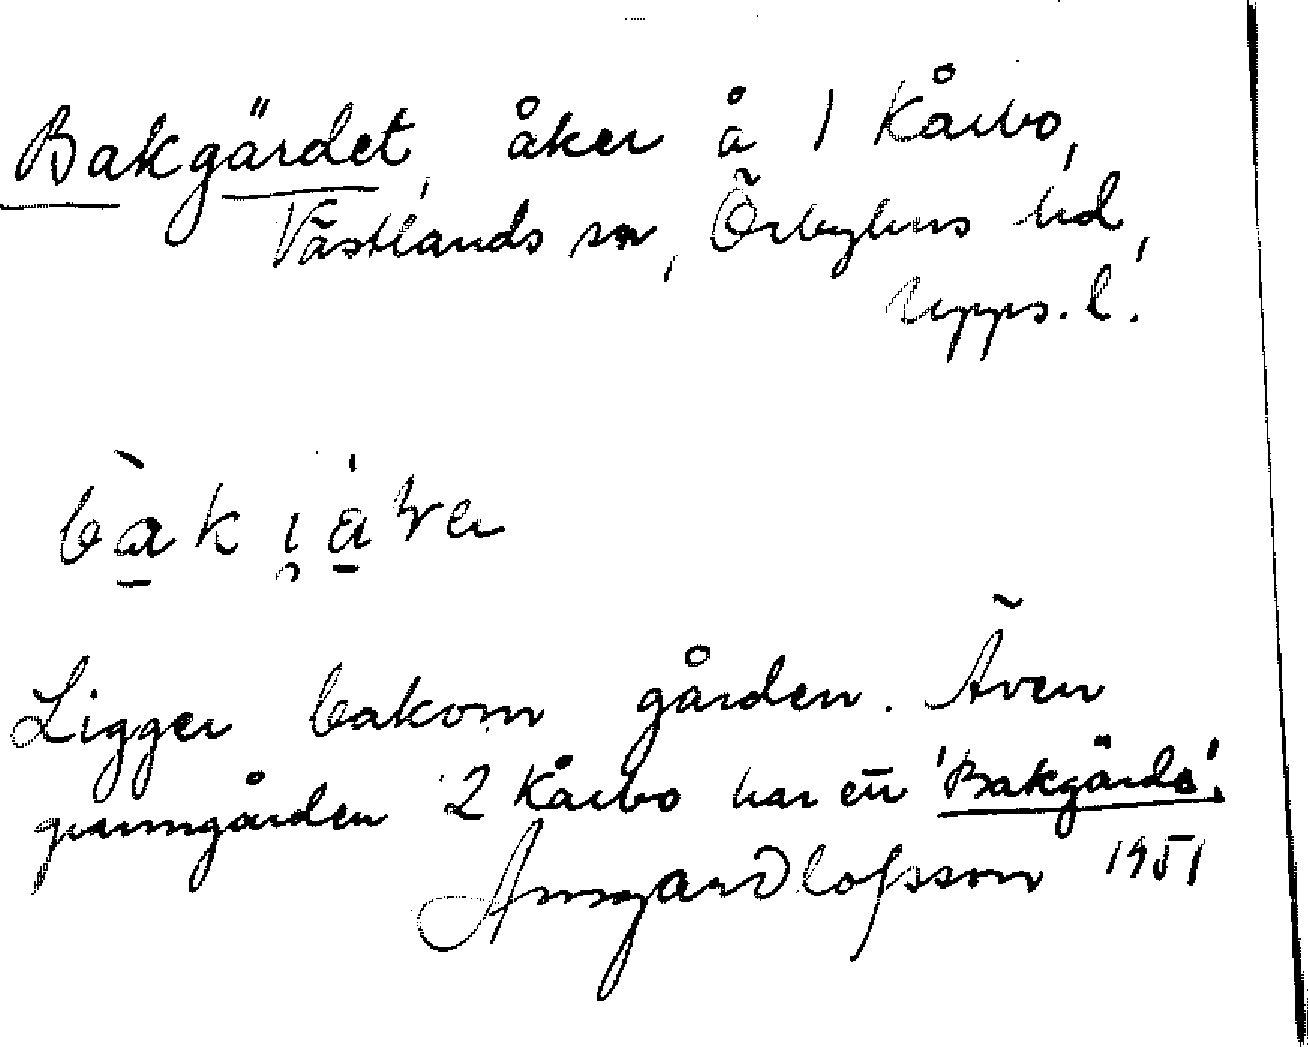 Bakgärdet, åker å 1 Kårbo,
Västlands sn, Örbyhus hd,
Upps. l.
Ligger bakom gården. Även
granngården 2 Kårbo har ett 'Bakgärde'.
Olofsson 1951